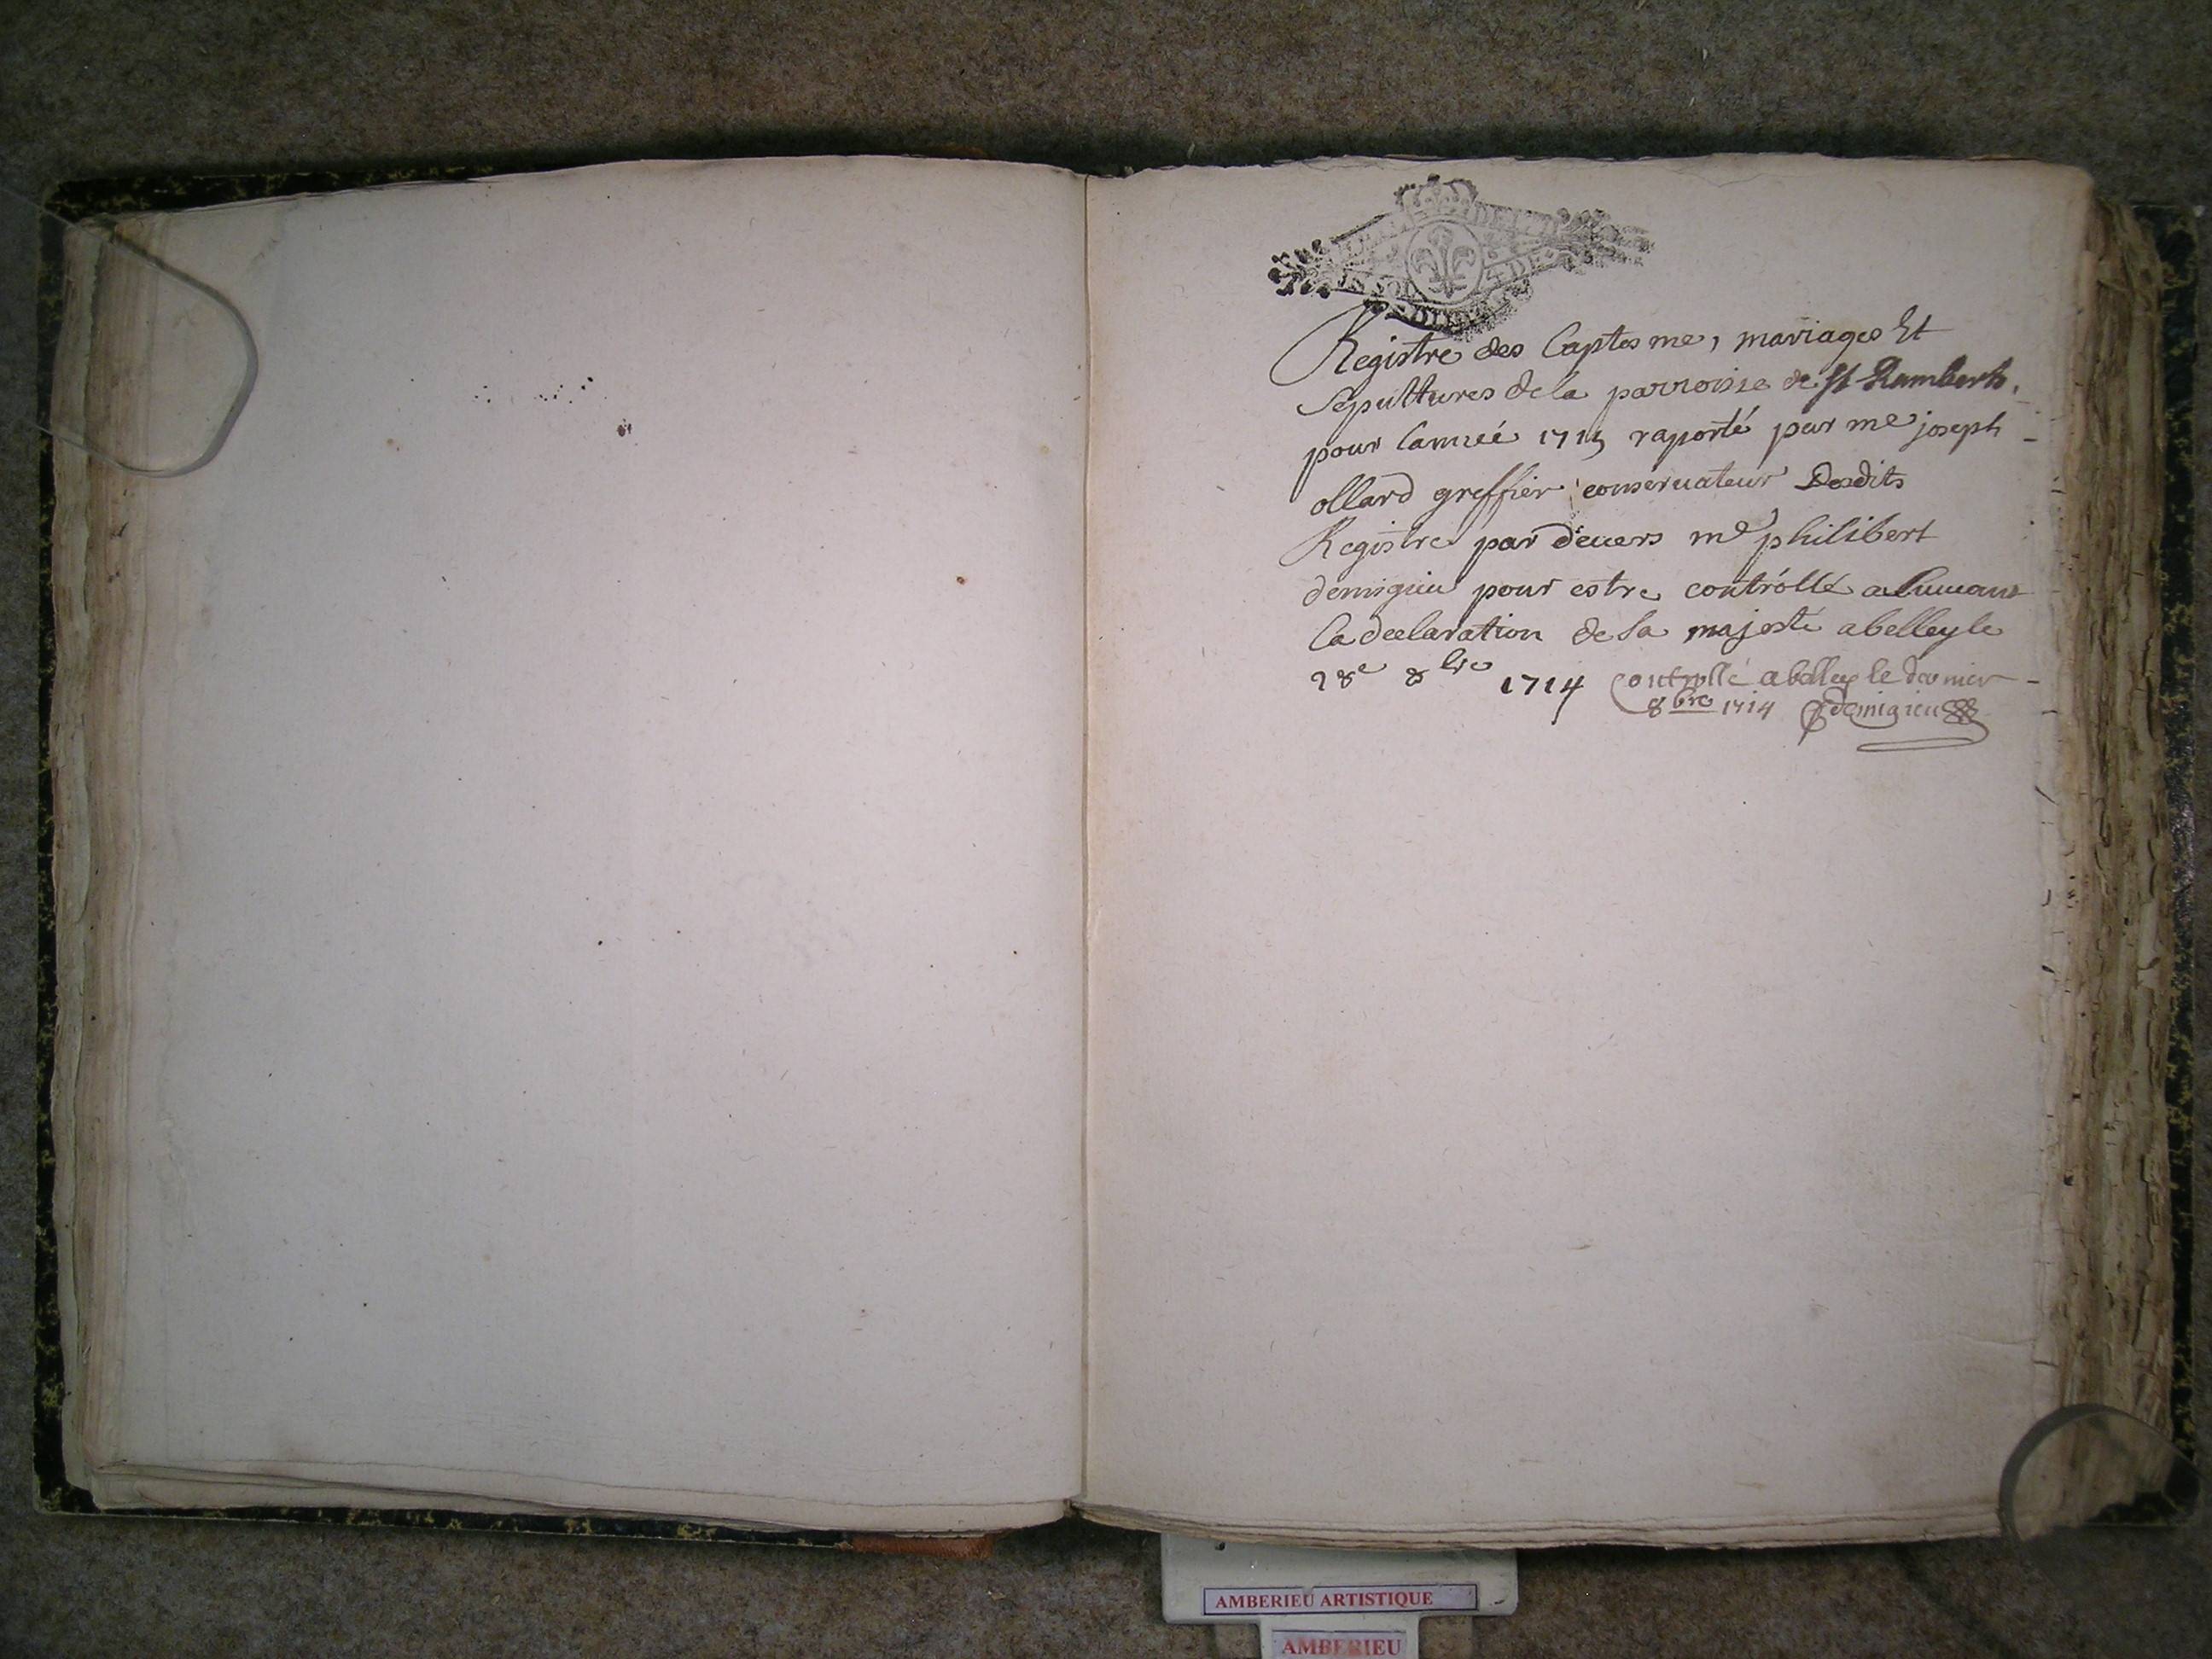 Registre des baptesme, mariages Et
Sepultures de la parroisse de St Rambert,
pour lanneé 1715 raporté par me joseph
ollard greffier conseruateur Desdits
Registre par deuers me philibert
demigieu pour estre controllé
la declaration de sa majesté a belley le
28e 8bre 1714
Controllé a belley le dernier
8bre 1714 demigieu
AMBERIEU ARTISTIQUE
AMBERIEU